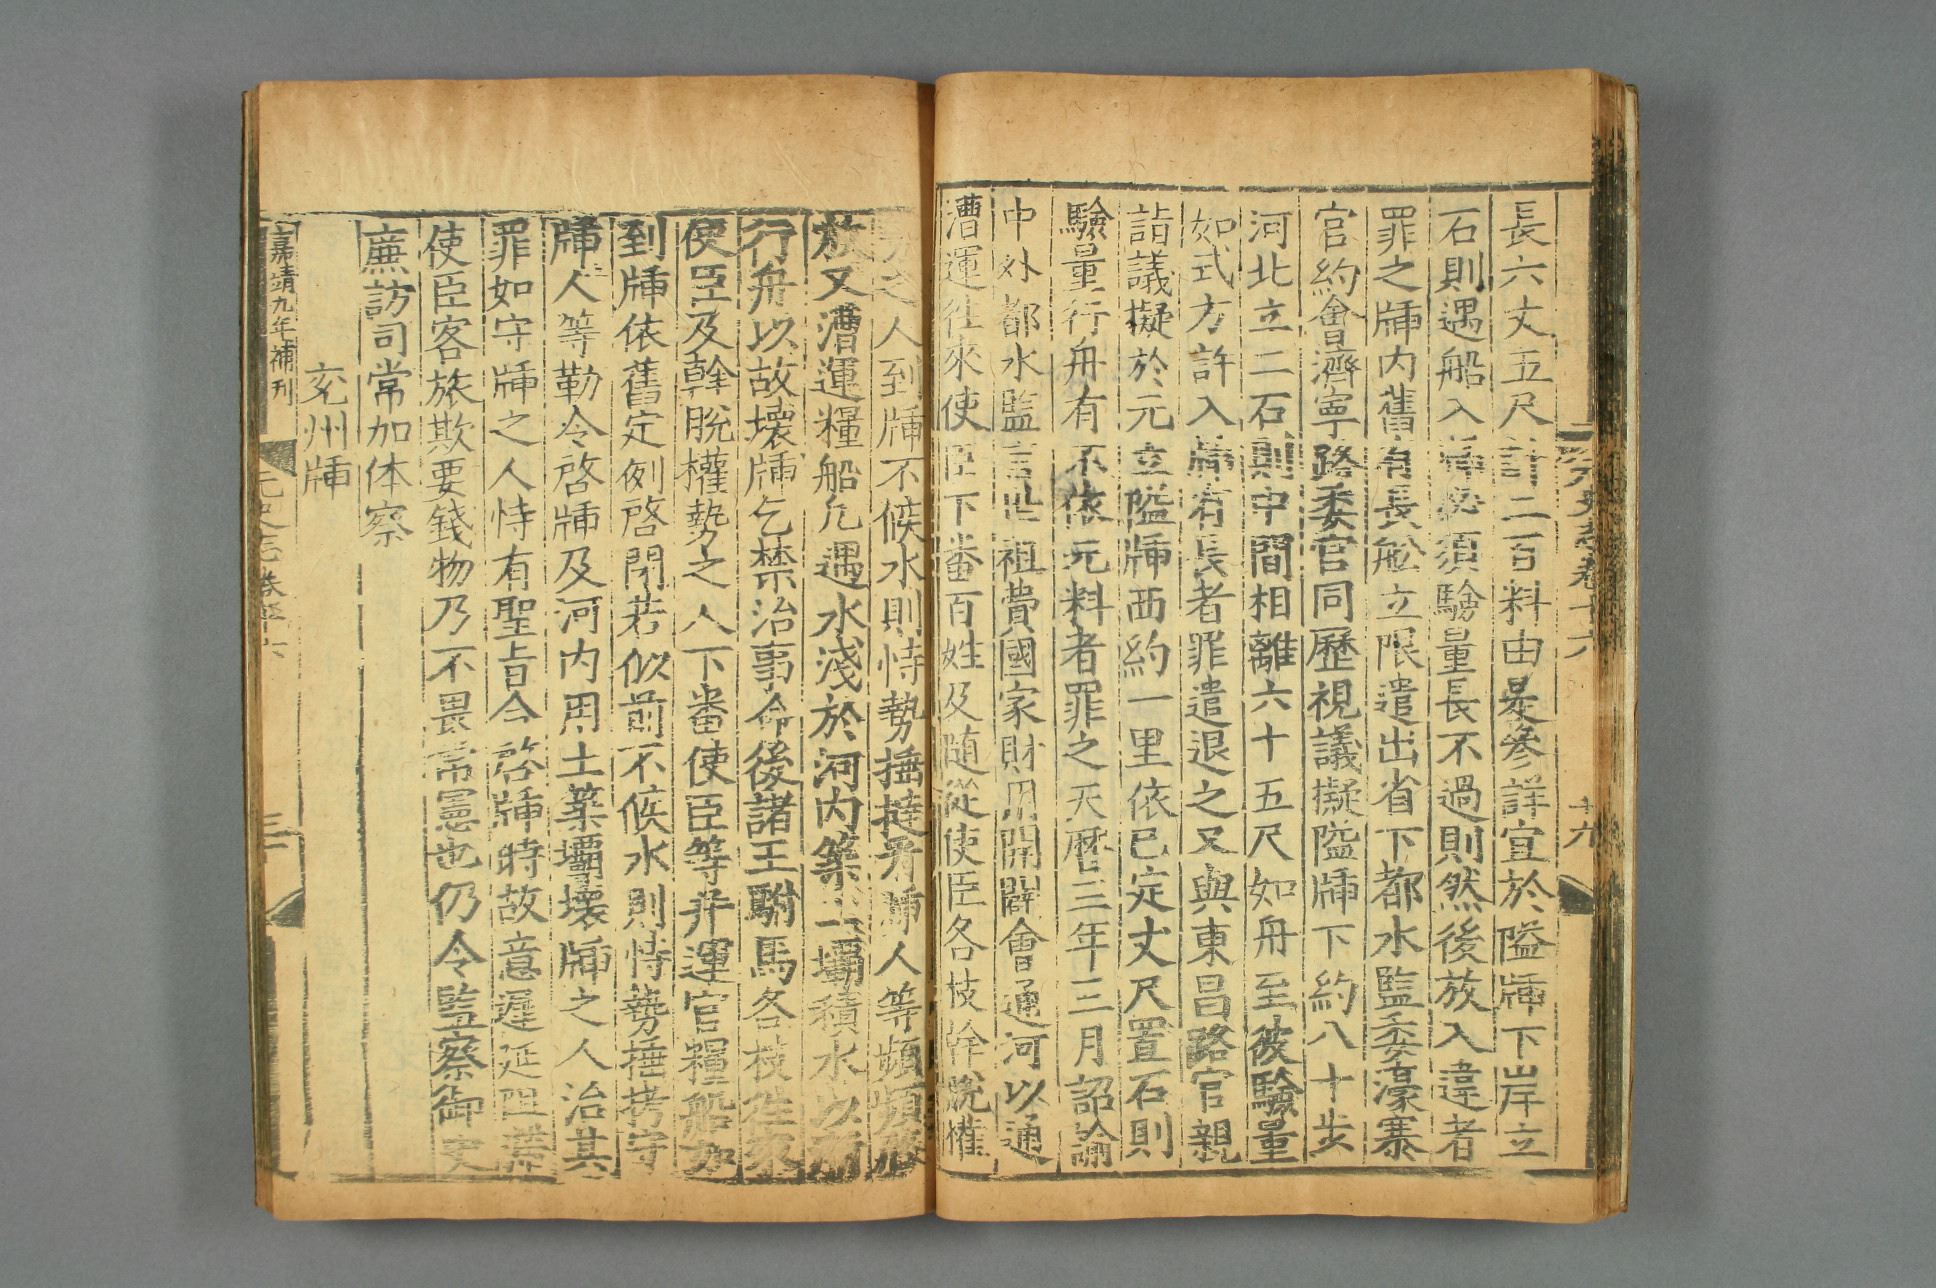 長六丈五尺計二百料由是參詳宜於隘牐下岸立
石則遇船入牐必須驗量長不過則然後放入違者
罪之牐内舊有長船立限遣出省下都水監委濠寨
官約會濟寧路委官同歷視議擬隘牐下約八十步
河北立二石則中間相離六十五尺如舟至彼驗量
如式方許入牐有長者罪遣退之又與東昌路官親
詣議擬於元立隘牐西約一里依已定丈尺置石則
驗量行舟有不依元料者罪之天曆三年三月詔諭
中外都水監言世祖費國家財用開闢會通河以通
漕運往來使臣下番百姓及随從使臣各枝幹脫權
勢之人到牐不候水則恃勢捶撻看牐人等頻頻啟
放又漕運糧船凢遇水淺於河内築土壩積水以漸
行舟以故壞牐乞禁治事命後諸王駙馬各枝往來
使臣及幹脫權勢之人下番使臣等并運官糧船如
到牐依舊定例啓閉若似前不候水則恃勢捶拷守
牐人等勒令啓牐及河内用土築壩壞牐之人治其
罪如守牐之人恃有聖旨合啓牐時故意遲延阻滯
使臣客旅欺要錢物乃不畏常憲也仍令監察御史
廉訪司常加体察
兖州牐
嘉靖九年補刊
元史志卷第十六